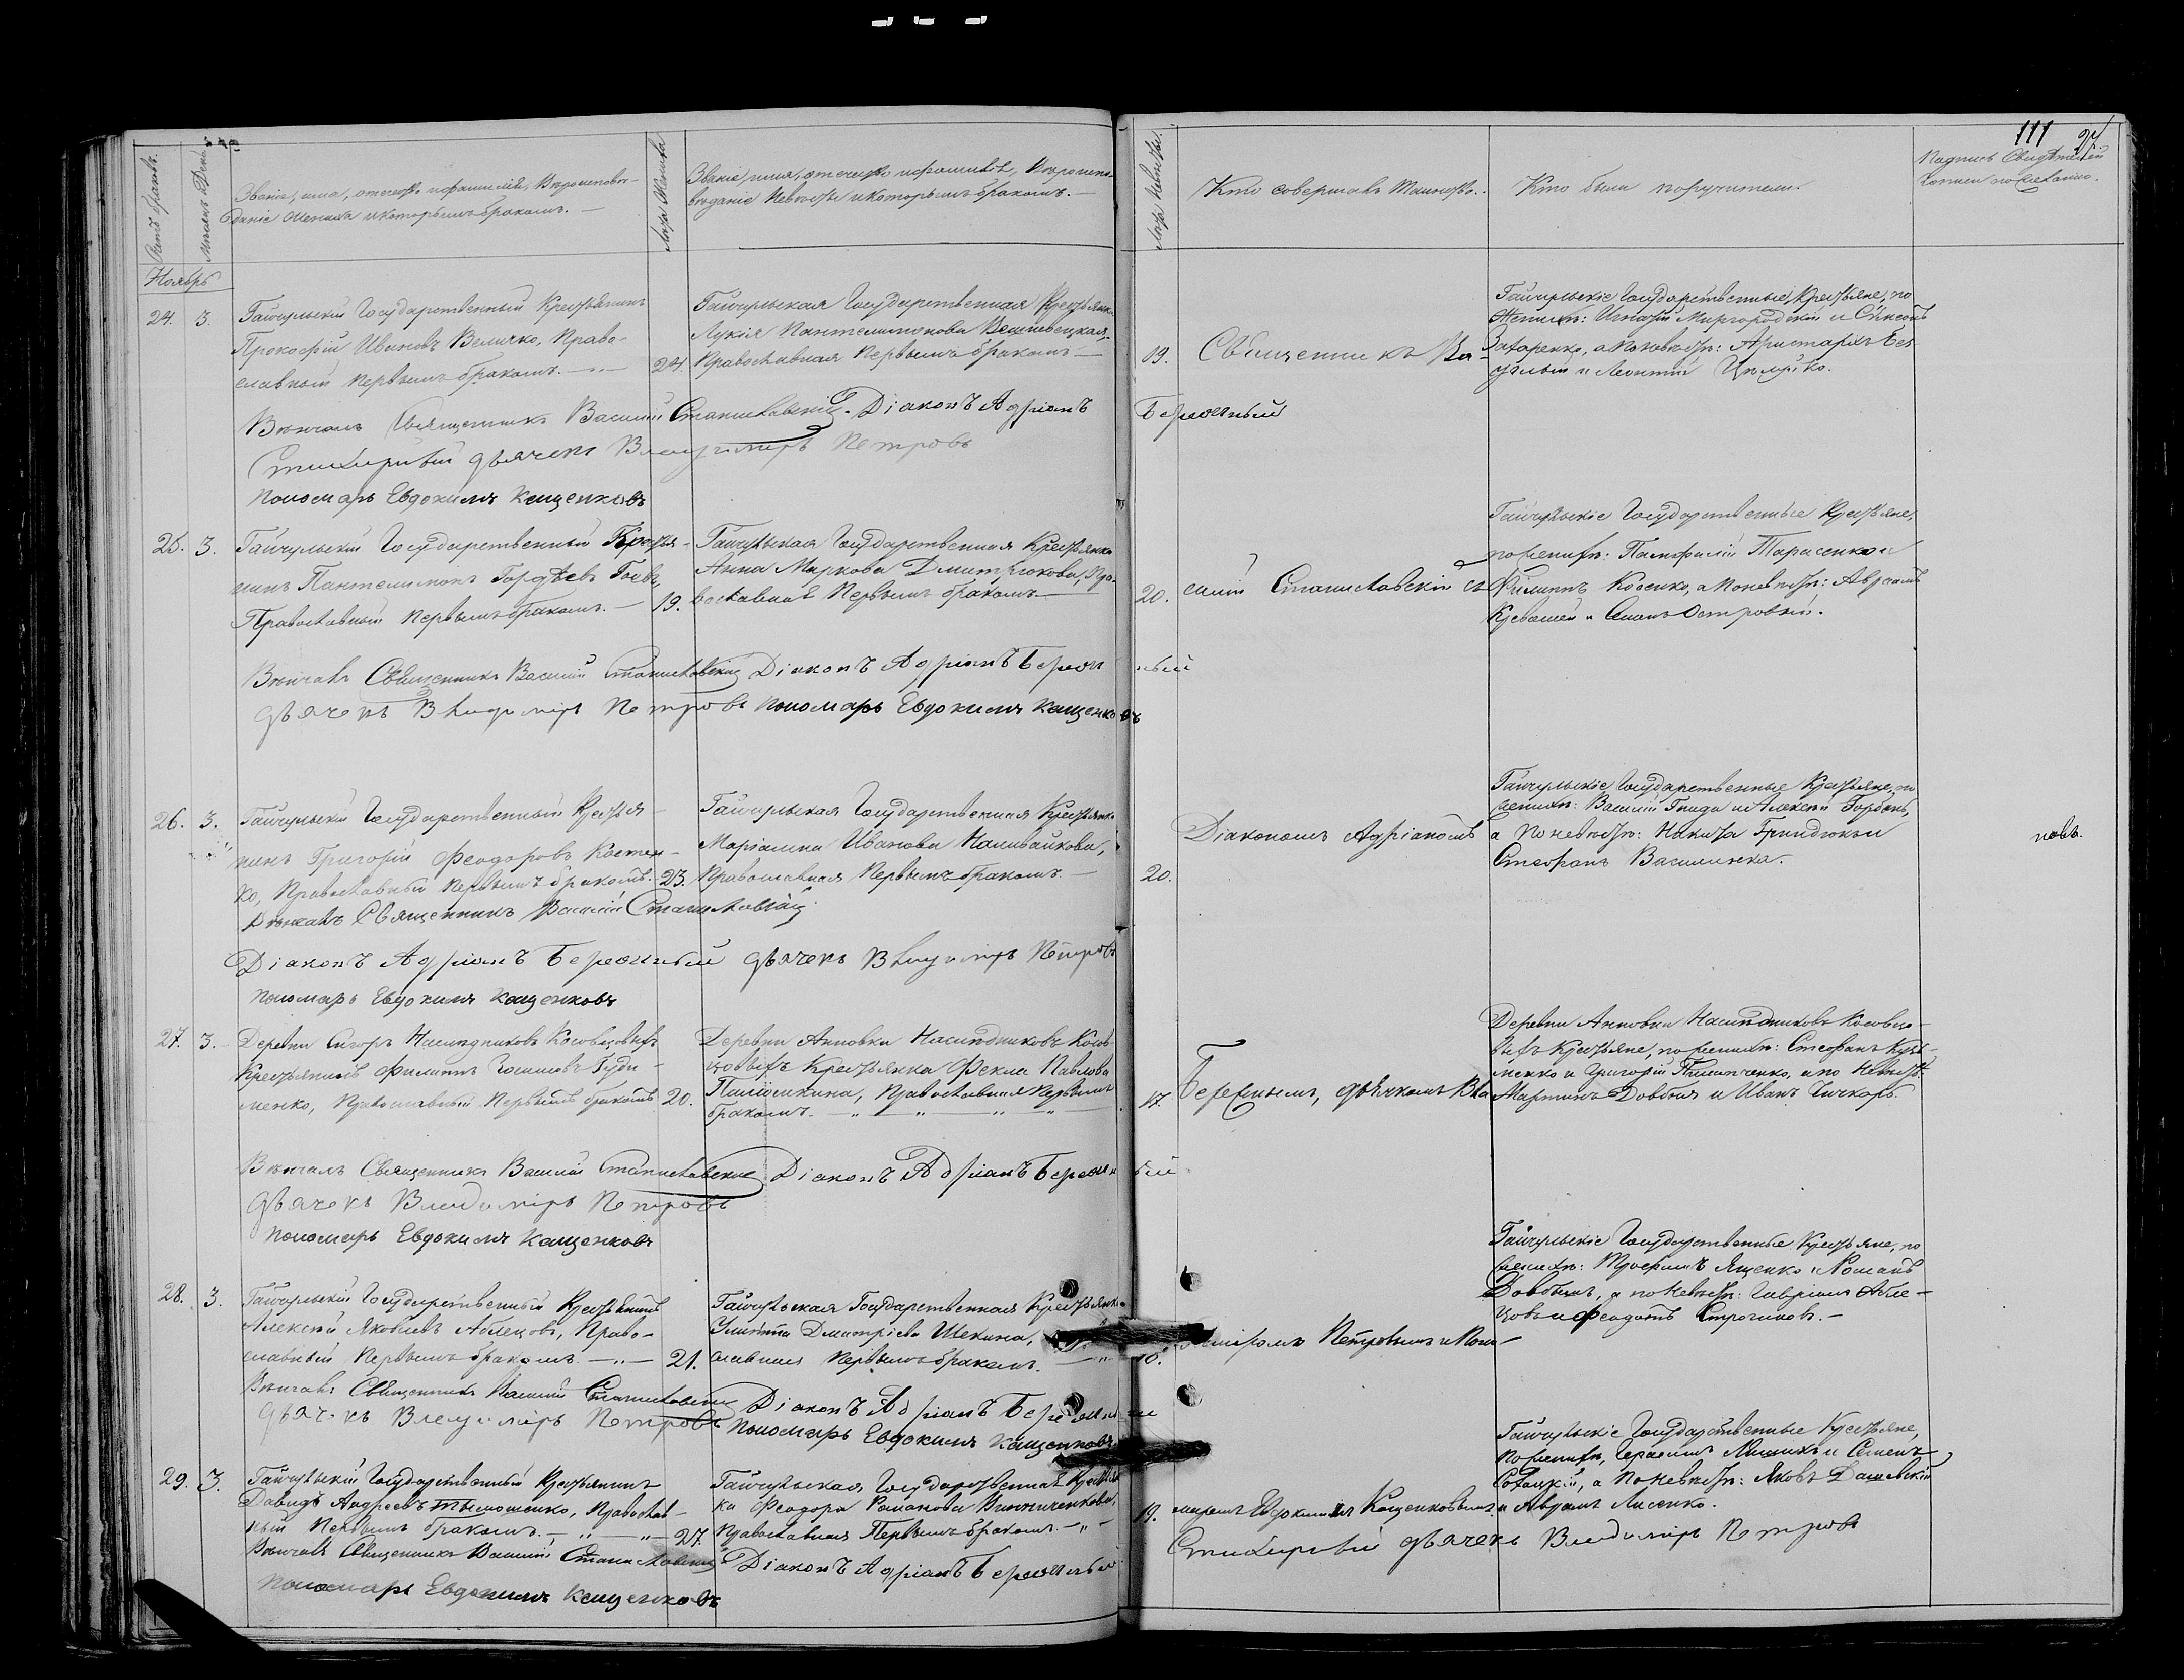 111 27
Счетъ браковъ.
Мѣсяцъ День
Званіе, имя, отечество и фамилія, Вѣроисповѣ-
даніе Жениха и которымъ бракомъ. —
Лѣта Жениха
Званіе, имя, отечество и фамилія, Вѣроиспо-
вѣданіе Невѣсты и которымъ бракомъ. —
Лѣта Невѣсты.
Кто совершалъ Таинство.
Кто были поручители.
Подпись Свидѣтелей
по желанію.
Ноябрь
24. 3.
Гайчульскій Государственный Крестьянинъ
Прокофій Ивановъ Величко, Право-
славный первымъ бракомъ. — 24.
Гайчульская Государственная Крестьянка
Лукія Пантелимонова
Православная первымъ бракомъ —
19. Священникъ Ва-
Гайчульскіе Государственные Крестьяне, по
Женихѣ: Игнатій Миргородскій и
Захаренко, а по невѣстѣ: Аристархъ
и Леонтій
Вѣнчалъ Священникъ Василій Станиславскій. Діаконъ Адріанъ
Бережный
Стихирный дьячекъ Владиміръ Петровъ
Пономарь Евдокимъ Кащенковъ
25. 3.
Гайчульскій Государственный Крестья-
нинъ Пантелимонъ Гордѣевъ
Православный первымъ бракомъ. — 19.
Гайчульская Государственная Крестьянка
Анна Маркова Дмитрюкова, Пра-
вославная первымъ бракомъ —
20. силій Станиславскій съ
Гайчульскіе Государственные Крестьяне,
по женихѣ: Памфилій Тарасенко и
Филиппъ Косенко, а по невѣстѣ: Авраамъ
и Семенъ Островскій.
Вѣнчалъ Священникъ Василій Станиславскій Діаконъ Адріанъ Бережный
дьячекъ Владиміръ Петровъ Пономарь Евдокимъ Кащенковъ
26. 3.
Гайчульскій Государственный Крестья-
нинъ Григорій Феодоровъ Костен-
ко, Православный первымъ бракомъ. 23.
Гайчульская Государственная Крестьянка
Маріамна Иванова Наливайкова,
Православная первымъ бракомъ. —
20. Діакономъ Адріаномъ
Гайчульскіе Государственные Крестьяне, по
женихѣ: Василій Гнида и Алексѣй Горбань,
а по невѣстѣ: Никита Гриндюкъ и
Стефанъ Василенко.
новъ.
Вѣнчалъ Священникъ Василій Станиславскій
Діаконъ Адріанъ Бережный дьячекъ Владиміръ Петровъ
Пономарь Евдокимъ Кащенковъ
27. 3.
Деревни Наслѣдниковъ Косовцовыхъ
Крестьянинъ Филиппъ Гуди-
менко, Православный первымъ бракомъ 20.
Деревни Анновки Наслѣдниковъ Косов-
цовыхъ Крестьянка Фекла Павлова
Православная первымъ
бракомъ. —
17. Бережнымъ, дьячкомъ Вла
Деревни Анновки Наслѣдниковъ Косовцо-
выхъ Крестьяне, по женихѣ: Стефанъ Кузь-
менко и Григорій а по невѣстѣ
Мартинъ Довбышъ и Иванъ Чичкарь.
Вѣнчалъ Священникъ Василій Станиславскій Діаконъ Адріанъ Бережный
дьячекъ Владиміръ Петровъ
Пономарь Евдокимъ Кащенковъ
28. 3.
Гайчульскій Государственный Крестьянинъ
Алексѣй Яковлевъ Аблецовъ, Право-
славный первымъ бракомъ. — 21.
Гайчульская Государственная Крестьянка
Дмитріева Шекина,
славная первымъ бракомъ. —
диміромъ Петровымъ и Поно-
Гайчульскіе Государственные Крестьяне, по
женихѣ: Трофимъ Ященко и Романъ
Довбышъ, а по невѣстѣ: Гавріилъ Абле-
цовъ и Феодотъ Строгиновъ. —
Вѣнчалъ Священникъ Василій Станиславскій Діаконъ Адріанъ Бережный
дьячекъ Владиміръ Петровъ Пономарь Евдокимъ Кащенковъ
29. 3.
Гайчульскій Государственный Крестьянинъ
Давидъ Андреевъ Тымошенко, Православ-
ный первымъ бракомъ. — 27.
Гайчульская Государственная Крестьян-
ка Феодора Романова Винниченкова,
Православная Первымъ бракомъ. —
19. маремъ Евдокимомъ Кащенковымъ.
Гайчульскіе Государственные Крестьяне,
по женихѣ, Герасимъ и Семенъ
а по невѣстѣ: Яковъ Дашевскій
и Аврамъ Лисенко.
Вѣнчалъ Священникъ Василій Станиславскій Діаконъ Адріанъ Бережный
Стихирный дьячекъ Владиміръ Петровъ
Пономарь Евдокимъ Кащенковъ